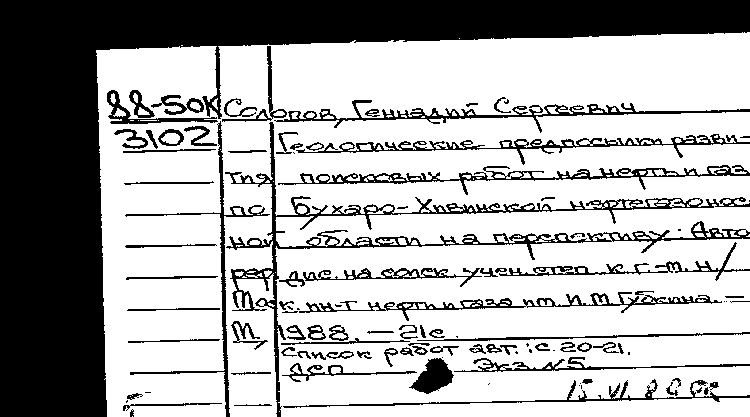 88-50К Солопов, Геннадий Сергеевич
3102 Геологические предпосылки разви-
тия поисковых работ на нефть и газ
по Бухаро-Хивинской нефтегазонос
ной области на перспективу: Авто
реф. дис. на соиск. учен. степ. к. г.-м. н/
Моск. ин-т нефти и газа им. И. М. Губкина. —
М, 1988. — 21с
Список работ авт.: с. 20-21.
ДСП Экз. №5.
15.VI.89